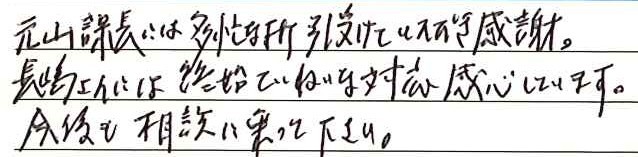 元山課長には多忙な所引受けていただき感謝。
長嶋さんには終始ていねいな対応感心しています。
今後も相談に乗って下さい。